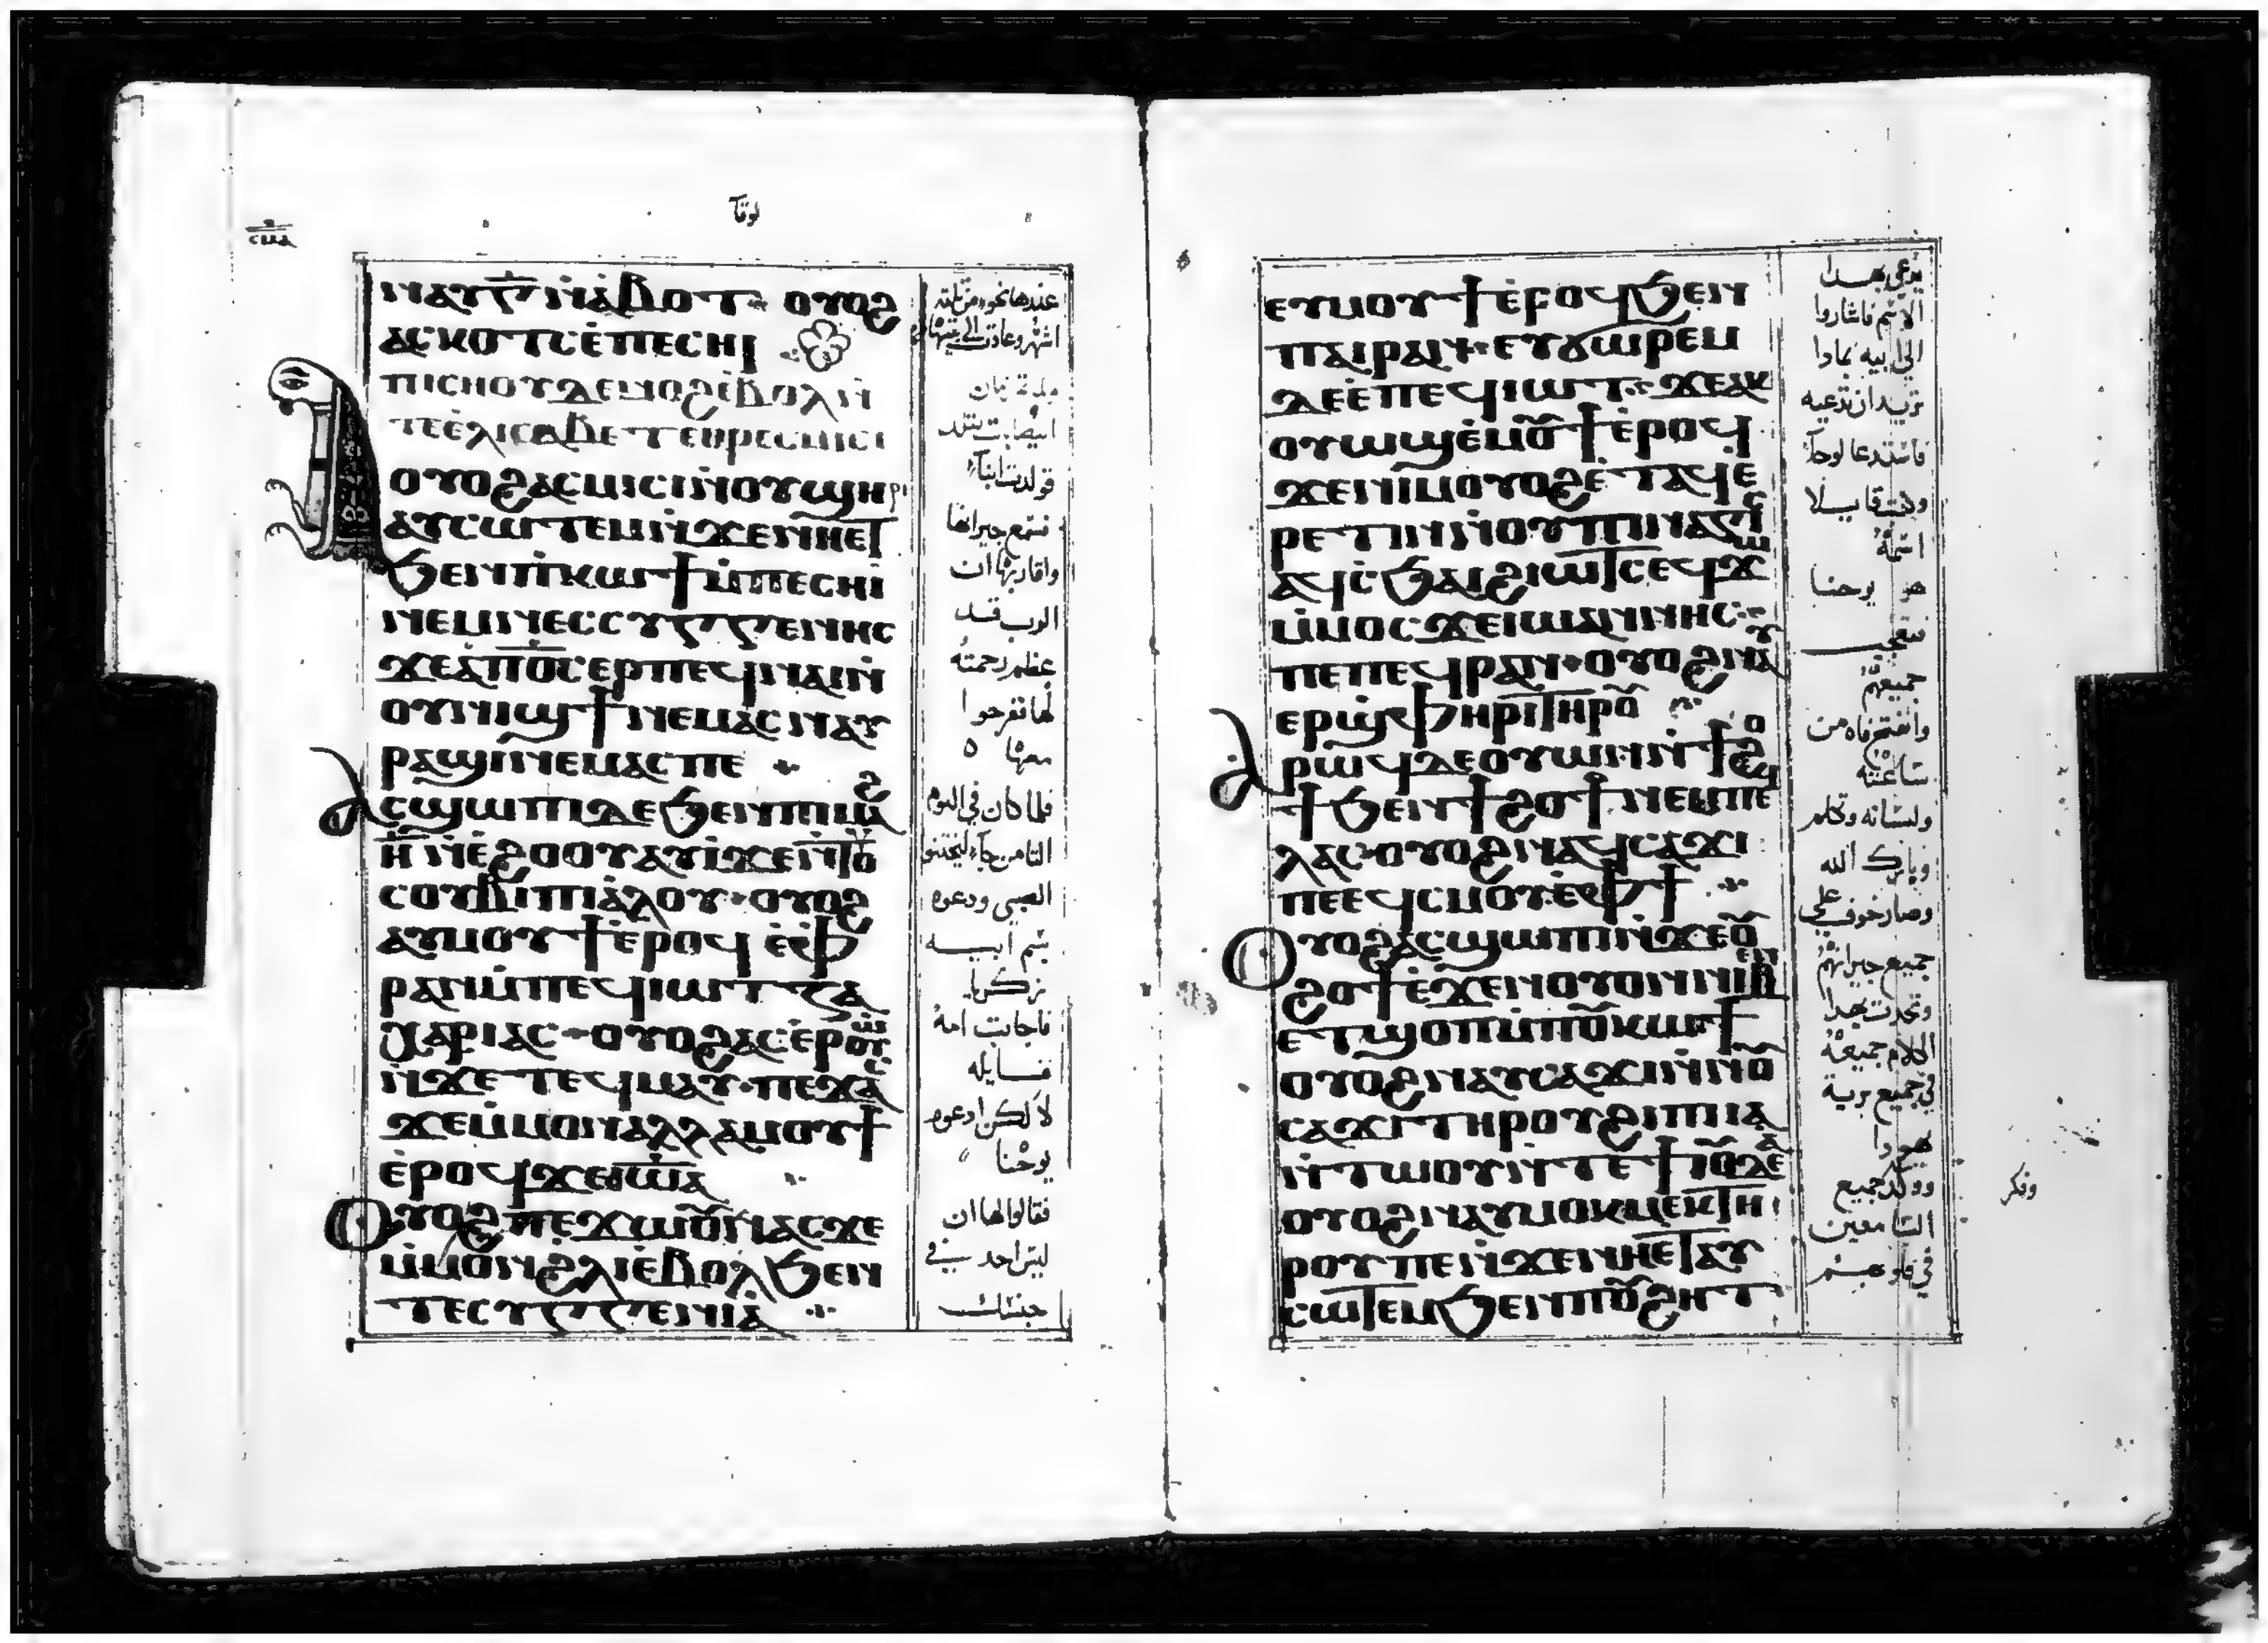 لوقا
ⲛⲁⲩⲅ̅ⲛ̀ⲁ̀ⲃⲟⲧ ⲟⲩⲟϩ
ⲁⲥⲕⲟⲧⲥⲉ̀ⲡⲉⲥⲏⲓ
ⲡⲓⲥⲏⲟⲩⲇⲉⲙⲟϩⲉ̀ⲃⲟⲗⲛ̀
ⲧⲉⲉ̀ⲗⲓⲥⲁⲃⲉⲧⲉⲑⲣⲉⲥⲙⲓⲥⲓ
ⲟⲩⲟϩⲁⲥⲙⲓⲥⲓⲛ̀ⲟⲩϣⲏⲣⲓ
ⲁⲩⲥⲱⲧⲉⲙⲛ̀ϫⲉⲛⲏⲉⲧ
ϧⲉⲛⲡⲓⲕⲱϯⲙ̀ⲡⲉⲥⲏⲓ
ⲛⲉⲙⲛⲉⲥⲥⲩⲅⲅⲉⲛⲏⲥ
ϫⲉⲁ̀ⲡⲟ̅ⲥ̅ⲉⲣⲡⲉϥⲛⲁⲓⲛ̀
ⲟⲩⲛⲓϣϯⲛⲉⲙⲁⲥⲛⲁⲩ
ⲣⲁϣⲓⲛⲉⲙⲁⲥⲡⲉ
ⲁⲥϣⲱⲡⲓⲇⲉϧⲉⲛⲡⲓⲙⲁϩ
ⲏ̅ⲛ̀ⲉ̀ϩⲟⲟⲩⲁⲩⲓ̀ϫⲉⲛ̀ⲧⲟⲩ
ⲥⲟⲩⲃⲓⲡⲓⲁ̀ⲗⲟⲩ ⲟⲩⲟϩ
ⲁⲩⲙⲟⲩϯⲉ̀ⲣⲟϥ ⲉ̀ⲫ
ⲣⲁⲛⲙ̀ⲡⲉϥⲓⲱⲧⲍⲁ
ⲭⲁⲣⲓⲁⲥ ⲟⲩⲟϩⲁⲥⲉ̀ⲣⲟⲩⲱ
ⲛ̀ϫⲉⲧⲉϥⲙⲁⲩ ⲡⲉϫⲁⲥ
ϫⲉⲙ̀ⲙⲟⲛⲁⲗⲗⲁⲙⲟⲩϯ
ⲉ̀ⲣⲟϥϫⲉⲓⲱ̅ⲁ
ⲟⲩⲟϩⲡⲉϫⲱⲟⲩⲛⲁⲥϫⲉ
ⲙ̀ⲙⲟⲛϩⲗⲓⲉ̀ⲃⲟⲗϧⲉⲛ
ⲧⲉⲥⲩⲅⲅⲉⲛⲓⲁ̀
عندها نحو من ثلثة
اشهر وعادت الى بيتها
اليصابات لتلد
فولدت ابنا
فسمع جيرانها
واقاربها ان
الرب قد
عظم رحمته
لها ففرحوا
معها ه
فلما كان في اليوم
الثامن جآء ليختنو
الصبي ودعوه
بسم ابيـه
زكريا
فاجابت امه
قـايله
لا لكن ادعوه
يوحنا
فقالوا لها ان
ليس احد في
جنسك
ⲉⲩⲙⲟⲩϯⲉ̀ⲣⲟϥϧⲉⲛ
ⲡⲁⲓⲣⲁⲛ ⲉⲩϭⲱⲣⲉⲙ
ⲇⲉⲉ̀ⲡⲉϥⲓⲱⲧ ϫⲉⲁⲕ
ⲟⲩⲱϣⲉ̀ⲙⲟⲩϯⲉ̀ⲣⲟϥ
ϫⲉⲛⲓⲙⲟⲩⲟϩⲉ̀ⲧⲁϥⲉ̀
ⲣⲉⲧⲓⲛⲛ̀ⲟⲩⲡⲓⲛⲁⲅⲓⲥ
ⲁϥⲥ̀ϧⲁⲓϩⲓⲱⲧⲥⲉϥϫⲱ
ⲙ̀ⲙⲟⲥϫⲉⲓⲱⲁⲛⲛⲏⲥ
ⲡⲉⲡⲉϥⲣⲁⲛ ⲟⲩⲟϩⲛⲁⲩ
ⲉⲣϣⲫⲏⲣⲓⲧⲏⲣⲟⲩ
ⲁⲣⲱϥⲇⲉⲟⲩⲱⲛⲛ̀ϯϩⲟ
ϯϧⲉⲛϯϩⲟϯⲛⲉⲙⲡⲉϥ
ⲗⲁⲥ ⲟⲩⲟϩⲛⲁϥⲥⲁϫⲓ
ⲡⲉⲉϥⲥⲙⲟⲩⲉ̀ⲫϯ
ⲟⲩⲟϩⲁⲥϣⲱⲡⲓⲛ̀ϫⲉⲟⲩ
ϩⲟϯⲉ̀ϫⲉⲛⲟⲩⲟⲛⲛⲓⲃⲉⲛ
ⲉⲧϣⲟⲡⲙ̀ⲡⲟⲩⲕⲱϯ
ⲟⲩⲟϩⲛⲁⲩⲥⲁϫⲓⲛ̀ⲛⲟⲩ
ⲥⲁϫⲓⲧⲏⲣⲟⲩϩⲓⲡⲓⲁ
ⲛ̀ⲧⲱⲟⲩⲛ̀ⲧⲉϯⲓⲟⲩⲇⲉⲁ̀
ⲟⲩⲟϩⲛⲁⲩⲙⲟⲕⲙⲉⲕⲧⲏ
ⲣⲟⲩⲡⲉⲛ̀ϫⲉⲛⲏⲉⲧⲁⲩ
ⲥⲱⲧⲉⲙϧⲉⲛⲡⲟⲩϩⲏⲧ
يدعى بهـدا
الاسم فاشاروا
الى ابيه بمادا
تريد ان تدعيه
فاستدعا لوحآ
وكتب قايـلا
اسمه
هو يوحنـا
فتعجـب
جميعهم
وانفتح فاه من
ساعته
ولسانه وتكلم
وبارك الله
وصار خوف على
جميع جيرانهم
وتحدث بهدا
الكلام جميعه
في جميع برية
يهودا
وفكر
جميع
السامعين
في قلوبهـم